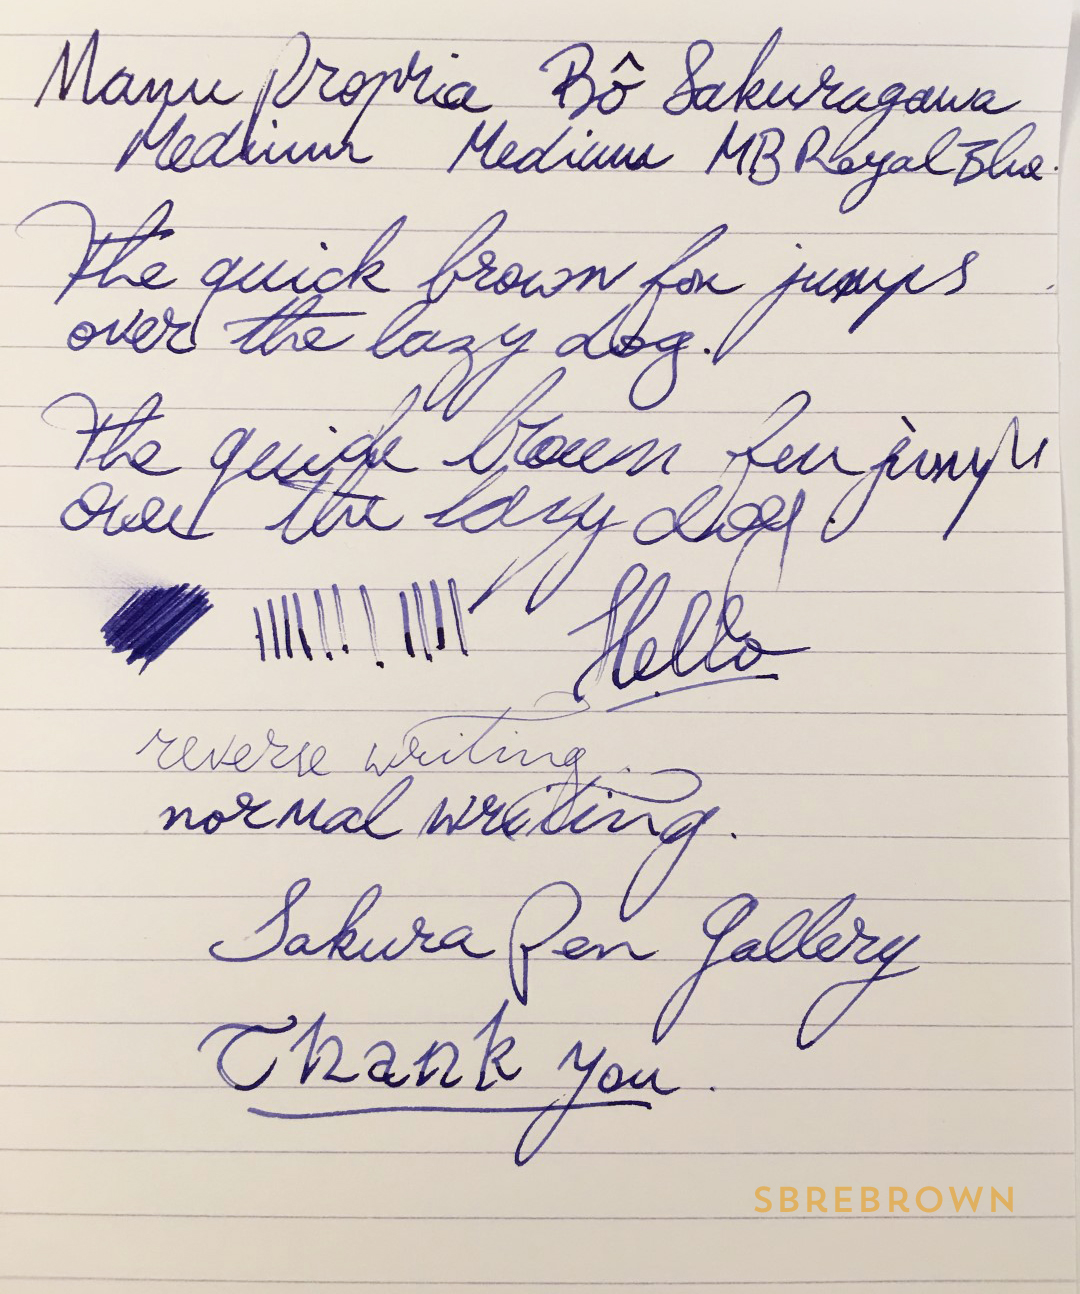 Manu Propria Bô Sakuragawa
Medium Medium MB Royal Blue.
The quick brown fox jumps
over the lazy dog.
The quick brown fox jumps
over the lazy dog.
Hello
reverse writing.
normal writing.
Sakura Pen Gallery
Thank you.
SBREBROWN